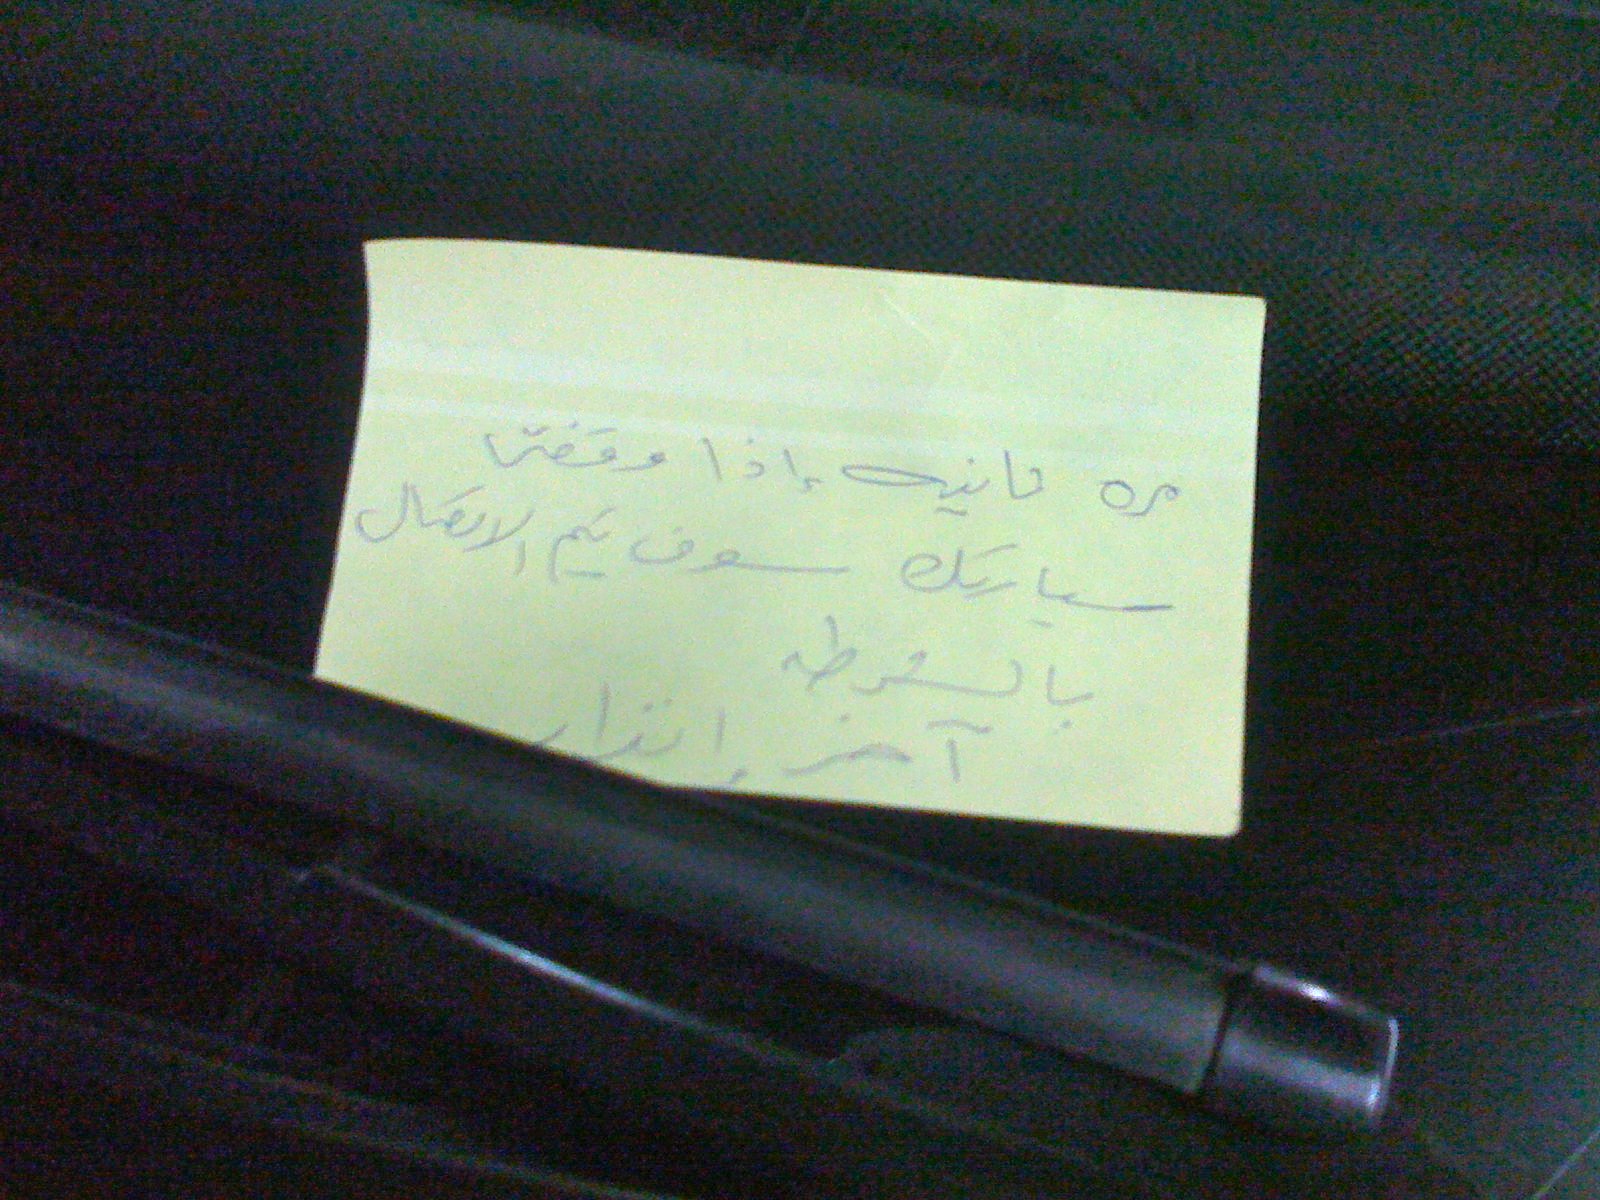 مره ثانيه إذا وقفت
سيارتك سوف يتم الاتصال
بالشرطه
آخر إنذار